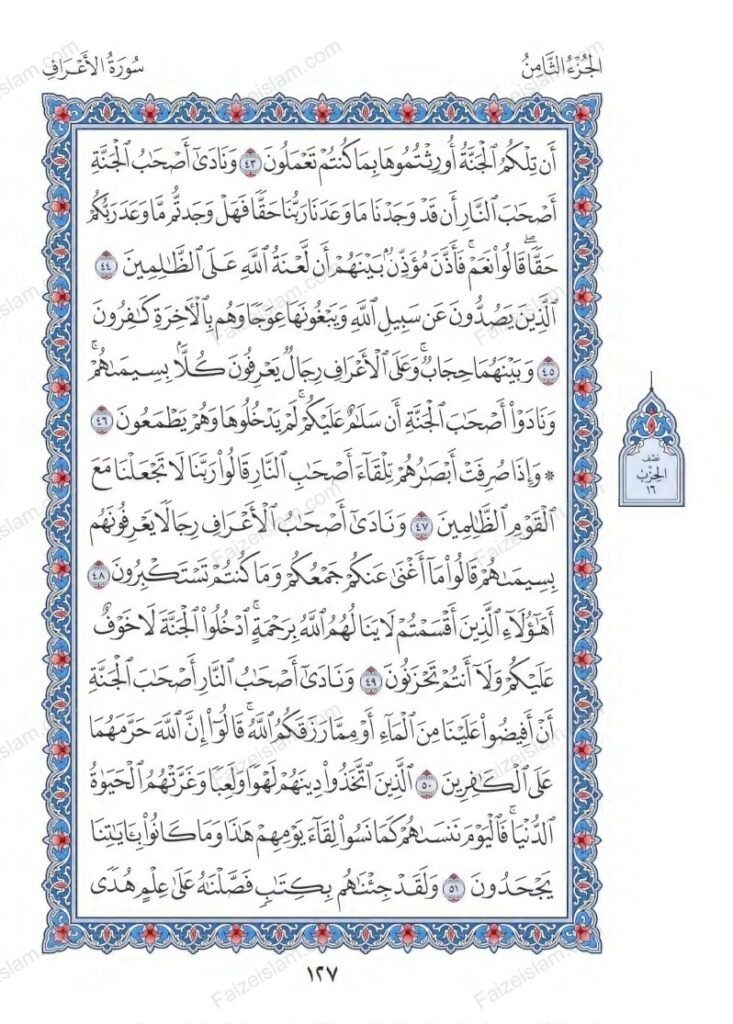 الجُزْءُ الثَّامِنُ
سُورَةُ الأَعْرَافِ
أَن تِلْكُمُ ٱلْجَنَّةُ أُورِثْتُمُوهَا بِمَا كُنتُمْ تَعْمَلُونَ ٤٣ وَنَادَىٰٓ أَصْحَٰبُ ٱلْجَنَّةِ
أَصْحَٰبَ ٱلنَّارِ أَن قَدْ وَجَدْنَا مَا وَعَدَنَا رَبُّنَا حَقًّا فَهَلْ وَجَدتُّم مَّا وَعَدَ رَبُّكُمْ
حَقًّاۖ قَالُوا۟ نَعَمْۚ فَأَذَّنَ مُؤَذِّنٌۢ بَيْنَهُمْ أَن لَّعْنَةُ ٱللَّهِ عَلَى ٱلظَّٰلِمِينَ ٤٤
ٱلَّذِينَ يَصُدُّونَ عَن سَبِيلِ ٱللَّهِ وَيَبْغُونَهَا عِوَجًا وَهُم بِٱلْءَاخِرَةِ كَٰفِرُونَ
٤٥ وَبَيْنَهُمَا حِجَابٌۚ وَعَلَى ٱلْأَعْرَافِ رِجَالٌ يَعْرِفُونَ كُلًّۢا بِسِيمَىٰهُمْۚ
وَنَادَوْا۟ أَصْحَٰبَ ٱلْجَنَّةِ أَن سَلَٰمٌ عَلَيْكُمْۚ لَمْ يَدْخُلُوهَا وَهُمْ يَطْمَعُونَ ٤٦
۞ وَإِذَا صُرِفَتْ أَبْصَٰرُهُمْ تِلْقَآءَ أَصْحَٰبِ ٱلنَّارِ قَالُوا۟ رَبَّنَا لَا تَجْعَلْنَا مَعَ
ٱلْقَوْمِ ٱلظَّٰلِمِينَ ٤٧ وَنَادَىٰٓ أَصْحَٰبُ ٱلْأَعْرَافِ رِجَالًا يَعْرِفُونَهُم
بِسِيمَىٰهُمْ قَالُوا۟ مَآ أَغْنَىٰ عَنكُمْ جَمْعُكُمْ وَمَا كُنتُمْ تَسْتَكْبِرُونَ ٤٨
أَهَٰٓؤُلَآءِ ٱلَّذِينَ أَقْسَمْتُمْ لَا يَنَالُهُمُ ٱللَّهُ بِرَحْمَةٍۚ ٱدْخُلُوا۟ ٱلْجَنَّةَ لَا خَوْفٌ
عَلَيْكُمْ وَلَآ أَنتُمْ تَحْزَنُونَ ٤٩ وَنَادَىٰٓ أَصْحَٰبُ ٱلنَّارِ أَصْحَٰبَ ٱلْجَنَّةِ
أَنْ أَفِيضُوا۟ عَلَيْنَا مِنَ ٱلْمَآءِ أَوْ مِمَّا رَزَقَكُمُ ٱللَّهُۚ قَالُوٓا۟ إِنَّ ٱللَّهَ حَرَّمَهُمَا
عَلَى ٱلْكَٰفِرِينَ ٥٠ ٱلَّذِينَ ٱتَّخَذُوا۟ دِينَهُمْ لَهْوًا وَلَعِبًا وَغَرَّتْهُمُ ٱلْحَيَوٰةُ
ٱلدُّنْيَاۚ فَٱلْيَوْمَ نَنسَىٰهُمْ كَمَا نَسُوا۟ لِقَآءَ يَوْمِهِمْ هَٰذَا وَمَا كَانُوا۟ بِـَٔايَٰتِنَا
يَجْحَدُونَ ٥١ وَلَقَدْ جِئْنَٰهُم بِكِتَٰبٍ فَصَّلْنَٰهُ عَلَىٰ عِلْمٍ هُدًى
نِصْف
الحِزْب
١٦
١٢٧
Faizeislam.com